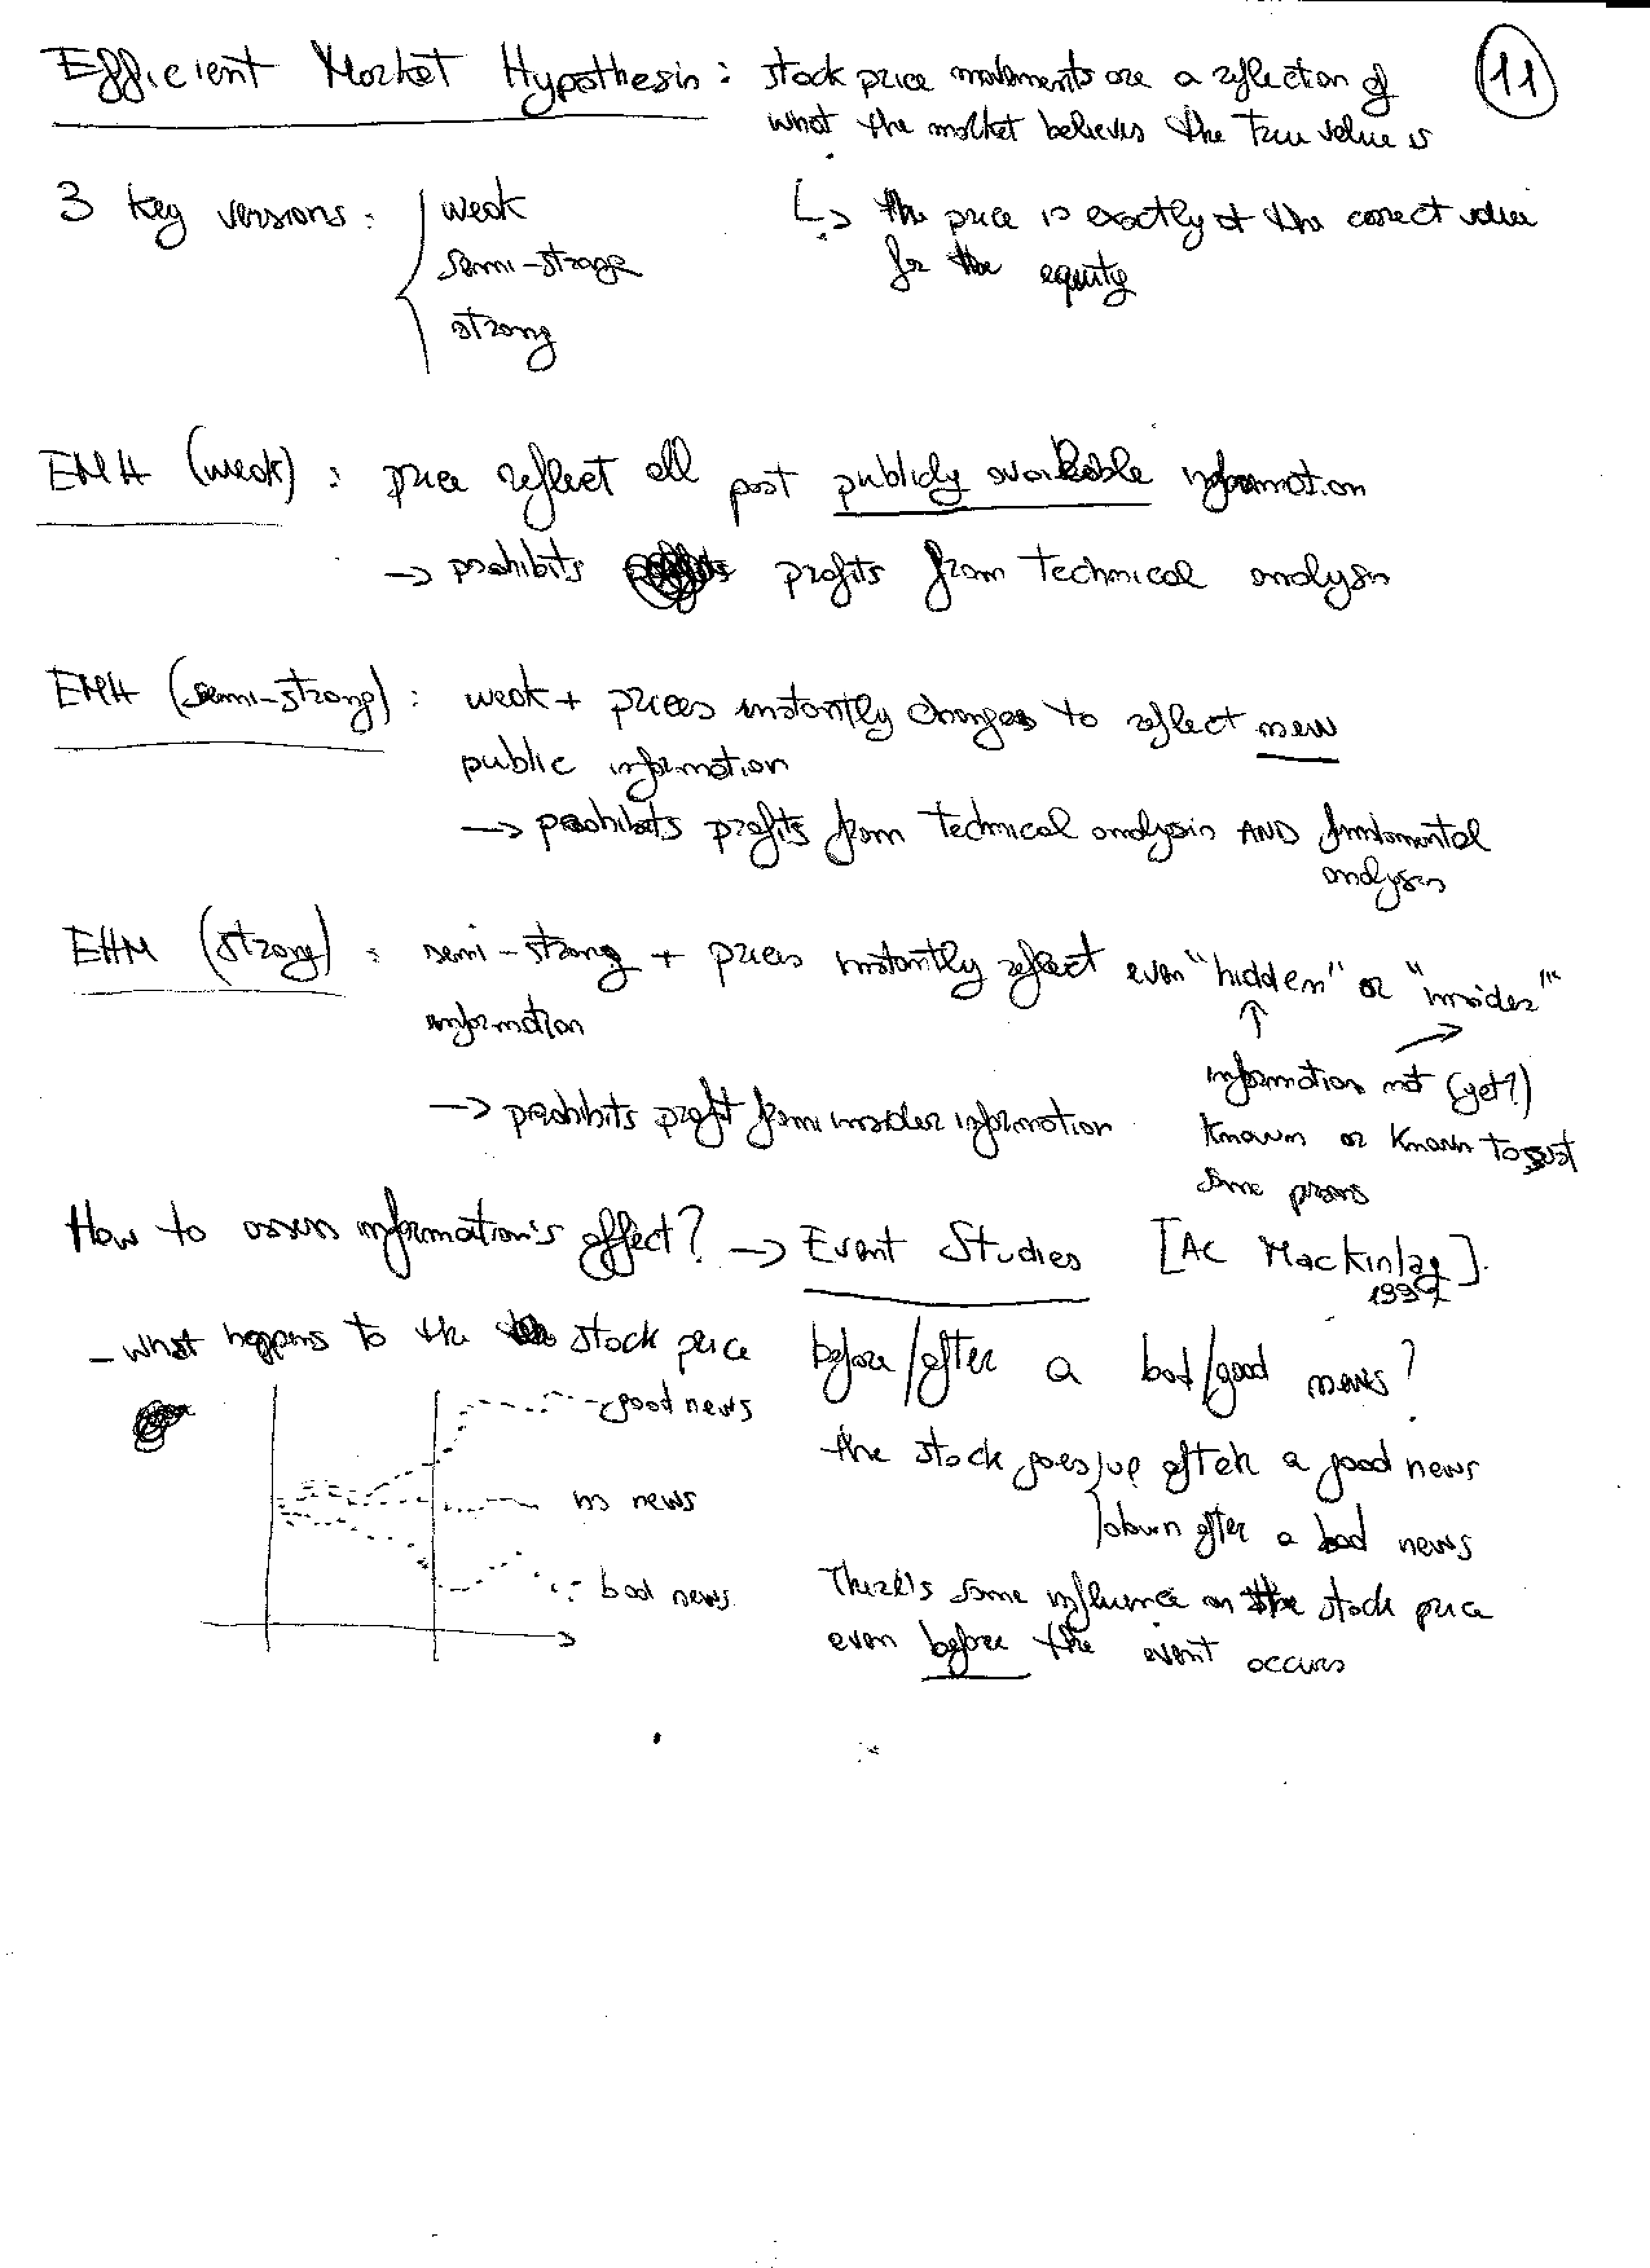 Efficient Market Hypothesis : stock price movements are a reflection of
what the market believes the true value is
11
↳ the price is exactly at the correct value
for the equity
3 key versions :
weak
semi-strong
strong
EMH (weak) : price reflect all past publicly available information
→ prohibits profits from technical analysis
EMH (semi-strong) : weak + prices instantly changes to reflect new
public information
→ prohibits profits from technical analysis AND fundamental
analysis
EHM (strong) : semi-strong + prices instantly reflect even "hidden" or "insider"
information
↑ →
information not (yet?)
known or known to just
some persons
→ prohibits profit from insider information
How to assess information's effect? → Event Studies [AC Mackinlay].
1997
- what happens to the stock price before/after a bad/good news?
good news
no news
bad news
the stock goes up after a good news
down after a bad news
There's some influence on the stock price
even before the event occurs